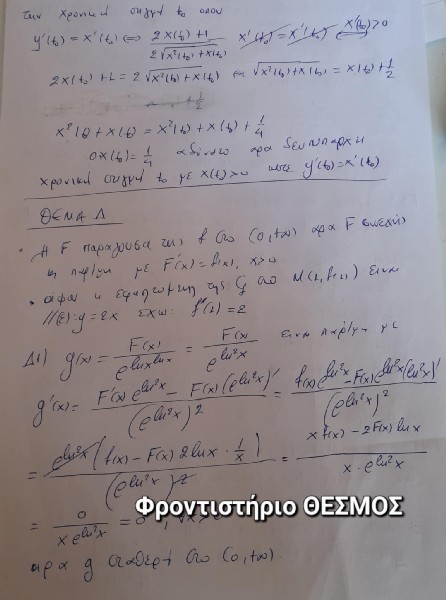 την χρονική στιγμή t₀ όπου
y'(t₀) = x'(t₀) ⟺ (2x(t₀)+1)/(2√(x²(t₀)+x(t₀))) x'(t₀) = x'(t₀) ⟺ x'(t₀)>0
2x(t₀)+1 = 2√(x²(t₀)+x(t₀)) ⟺ √(x²(t₀)+x(t₀)) = x(t₀)+1/2
x²(t₀)+x(t₀) = x²(t₀)+x(t₀)+1/4
0x(t₀) = 1/4 αδύνατο άρα δεν υπάρχει
χρονική στιγμή t₀ με x(t₀)>0 ώστε y'(t₀)=x'(t₀)
ΘΕΜΑ Δ
• Η F παράγουσα της f στο (0,+∞) άρα F συνεχής
κι παρ/μη με F'(x) = f(x), x>0
• αφού η εφαπτομένη της Cf στο M(1,f(1)) είναι
//(ε): y=2x έχω: f'(1) = 2
Δ1) g(x) = F(x)/e^(lnx·lnx) = F(x)/e^(ln²x) είναι παρ/μη με
g'(x) = (F'(x)e^(ln²x) - F(x)(e^(ln²x))')/(e^(ln²x))² = (f(x)e^(ln²x) - F(x)e^(ln²x)(ln²x)')/(e^(ln²x))²
= e^(ln²x)(f(x) - F(x)2lnx·1/x)/(e^(ln²x))² = (xf(x) - 2F(x)lnx)/(x·e^(ln²x))
= 0/(xe^(ln²x)) = 0, ∀x>0
άρα g σταθερή στο (0,+∞).
Φροντιστήριο ΘΕΣΜΟΣ